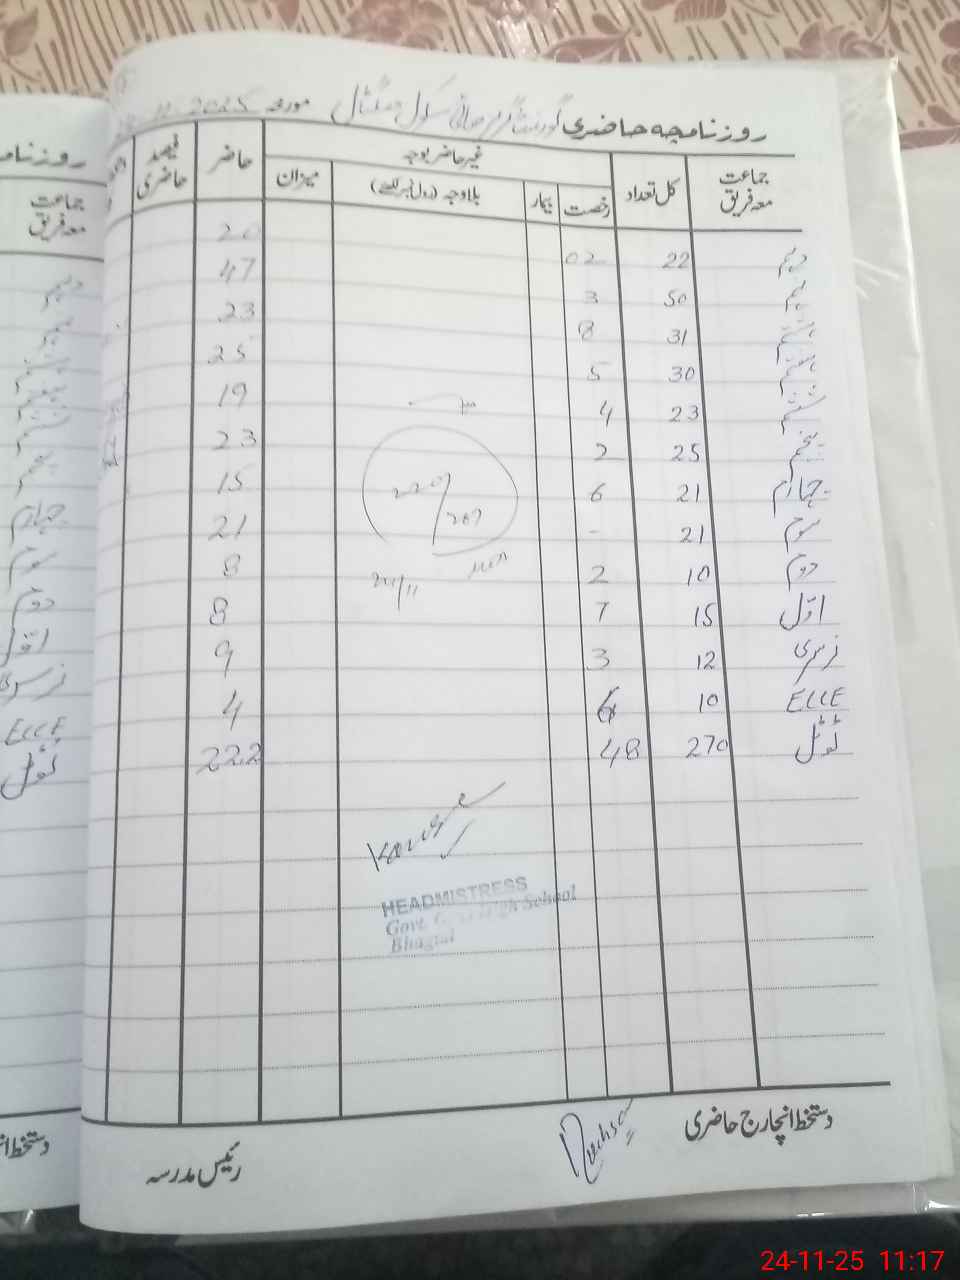 روزنامچہ حاضری گورنمنٹ گرلز ہائی سکول بھگٹال مورخہ 2025
جماعت معہ فریق کل تعداد غیر حاضر بوجہ حاضر فیصد حاضری
رخصت بیمار بلاوجہ (رول نمبر لکھیے) میزان
دہم 22 02 20
نہم 50 3 47
ہشتم 31 8 23
ہفتم 30 5 25
ششم 23 4 19
پنجم 25 2 23
چہارم 21 6 15
سوم 21 - 21
دوم 10 2 8
اوّل 15 7 8
نرسری 12 3 9
ECCE 10 6 4
ٹوٹل 270 48 222
HEADMISTRESS
Govt. Girls High School
Bhagtal
دستخط انچارج حاضری
رئیس مدرسہ
روزنامچہ
جماعت
معہ فریق
دہم
نہم
ہشتم
ہفتم
ششم
پنجم
چہارم
سوم
دوم
اوّل
نرسری
ECCE
ٹوٹل
24-11-25 11:17